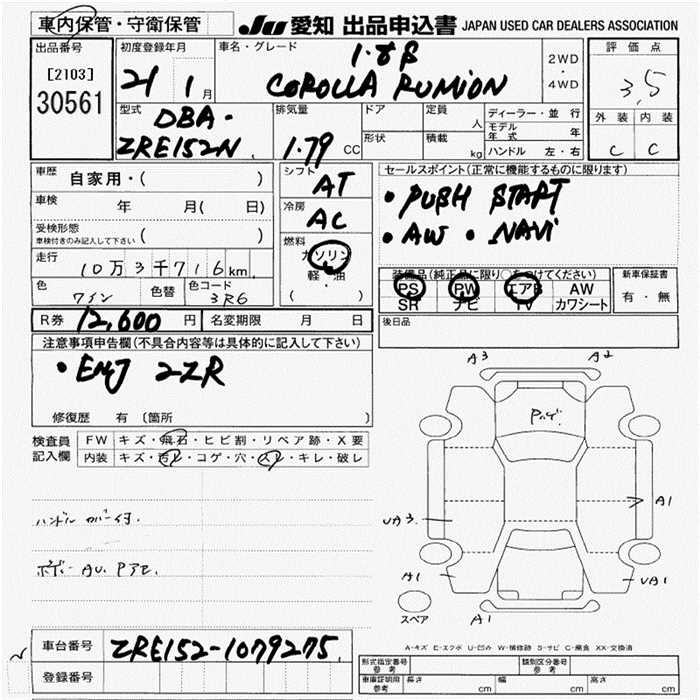 車内保管・守衛保管
JU 愛知 出品申込書 JAPAN USED CAR DEALERS ASSOCIATION
出品番号
[2103]
30561
初度登録年月
21 1月
車名・グレード
1.8B
COROLLA RUMION
2WD
・
4WD
評価点
3.5
外装 内装
C C
型式
DBA-
ZRE152N
排気量
1.79 CC
ドア
形状
定員
人
積載
kg
ディーラー・並行
モデル年式 年
ハンドル 左・右
車歴
自家用・( )
車検
年 月( 日)
受検形態
車検付きのみ記入して下さい ( )
走行
10万3千716km
色
ワイン
色替
色コード
3R6
シフト
AT
冷房
AC
燃料
ガソリン
軽・油
( )
セールスポイント(正常に機能するものに限ります)
・PUSH START
・AW ・NAVI
装備品(純正品に限り○をつけてください)
PS PW エアB AW
SR ナビ TV カワシート
新車保証書
有・無
後日品
R券 12,600 円
名変期限 月 日
注意事項申告欄(不具合内容等は具体的に記入して下さい)
・ENJ 2ZR
修復歴 有 〔箇所 〕
検査員
記入欄
FW キズ・飛石・ヒビ割・リペア跡・X要
内装 キズ・汚レ・コゲ・穴・スレ・キレ・破レ
ハンドル カバー付.
ボデー AU. PアE.
A3
A2
A1
UA3
A1
UA1
A1
スペア
A-キズ E-エクボ U-凹み W-補修跡 S-サビ C-腐食 XX-交換済
車台番号 ZRE152-1079275
登録番号
型式指定番号
参考
類別区分番号
参考
車庫証明用
参考
長さ cm
幅 cm
高さ cm